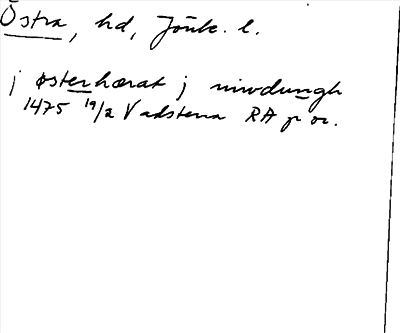 Östra, hd, Jönk. l.
j østerhærat j niwdungh
1475 19/2 Vadstena RA p or.